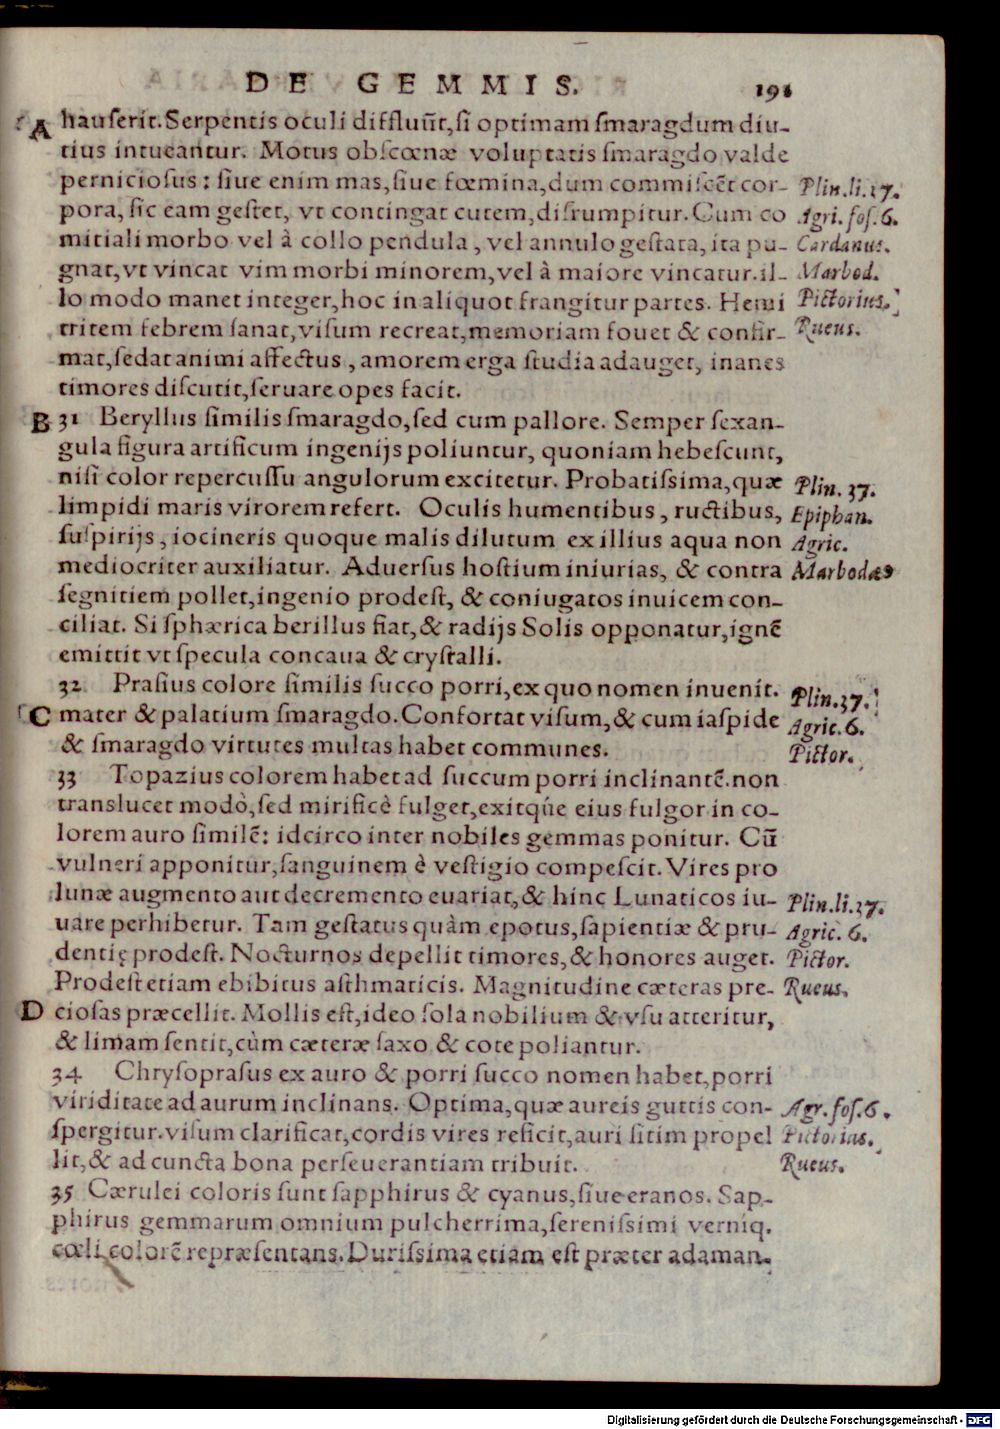 DE GEMMIS. 191
A hauſerit. Serpentis oculi diffluũt, ſi optimam ſmaragdum diu-
tius intueantur. Motus obſcœnæ voluptatis ſmaragdo valde
perniciosus: ſiue enim mas, ſiue fœmina, dum commiſcẽt cor- Plin. li. 37.
pora, ſic eam geſtet, vt contingat cutem, diſrumpitur. Cum co Agri. foſ. 6.
mitiali morbo vel à collo pendula, vel annulo geſtata, ita pu- Cardanus.
gnat, vt vincat vim morbi minorem, vel à maiore vincatur. il- Marbod.
lo modo manet integer, hoc in aliquot frangitur partes. Hemi Pictorius.
tritem febrem ſanat, viſum recreat, memoriam fouet & confir- Rueus.
mat, ſedat animi affectus, amorem erga ſtudia adauget, inanes
timores diſcutit, ſeruare opes facit.
B 31 Beryllus ſimilis ſmaragdo, ſed cum pallore. Semper ſexan-
gula figura artificum ingenijs poliuntur, quoniam hebeſcunt,
niſi color repercuſſu angulorum excitetur. Probatiſsima, quæ Plin. 37.
limpidi maris virorem refert. Oculis humentibus, ructibus, Epiphan.
ſuſpirijs, iocineris quoque malis dilutum ex illius aqua non Agric.
mediocriter auxiliatur. Aduersus hoſtium iniurias, & contra Marbodæs
ſegnitiem pollet, ingenio prodeſt, & coniugatos inuicem con-
ciliat. Si ſphærica berillus fiat, & radijs Solis opponatur, ignẽ
emittit vt ſpecula concaua & cryſtalli.
32 Praſius colore ſimilis ſucco porri, ex quo nomen inuenit. Plin. 37.
C mater & palatium ſmaragdo. Confortat viſum, & cum iaſpide Agric. 6.
& ſmaragdo virtutes multas habet communes. Pictor.
33 Topazius colorem habet ad ſuccum porri inclinantẽ. non
translucet modò, ſed mirificè fulget, exitq́ue eius fulgor in co-
lorem auro ſimilẽ: idcirco inter nobiles gemmas ponitur. Cũ
vulneri apponitur, ſanguinem è veſtigio compeſcit. Vires pro
lunæ augmento aut decremento euariat, & hinc Lunaticos iu- Plin. li. 37.
uare perhibetur. Tam geſtatus quàm epotus, ſapientiæ & pru- Agric. 6.
dentię prodeſt. Nocturnos depellit timores, & honores auget. Pictor.
Prodeſt etiam ebibitus aſthmaticis. Magnitudine cæteras pre- Rueus.
D cioſas præcellit. Mollis eſt, ideo ſola nobilium & vſu atteritur,
& limam ſentit, cùm cæteræ ſaxo & cote poliantur.
34 Chryſopraſus ex auro & porri ſucco nomen habet, porri
viriditate ad aurum inclinans. Optima, quæ aureis guttis con- Agr. foſ. 6.
ſpergitur. viſum clarificat, cordis vires reficit, auri ſitim propel Pictorius.
lit, & ad cuncta bona perſeuerantiam tribuit. Rueus.
35 Cærulei coloris ſunt ſapphirus & cyanus, ſiue eranos. Sap-
phirus gemmarum omnium pulcherrima, ſereniſsimi verniq́.
cœli colorẽ repræſentans. Duriſsima etiam eſt præter adaman-
Digitalisierung gefördert durch die Deutsche Forschungsgemeinschaft - DFG